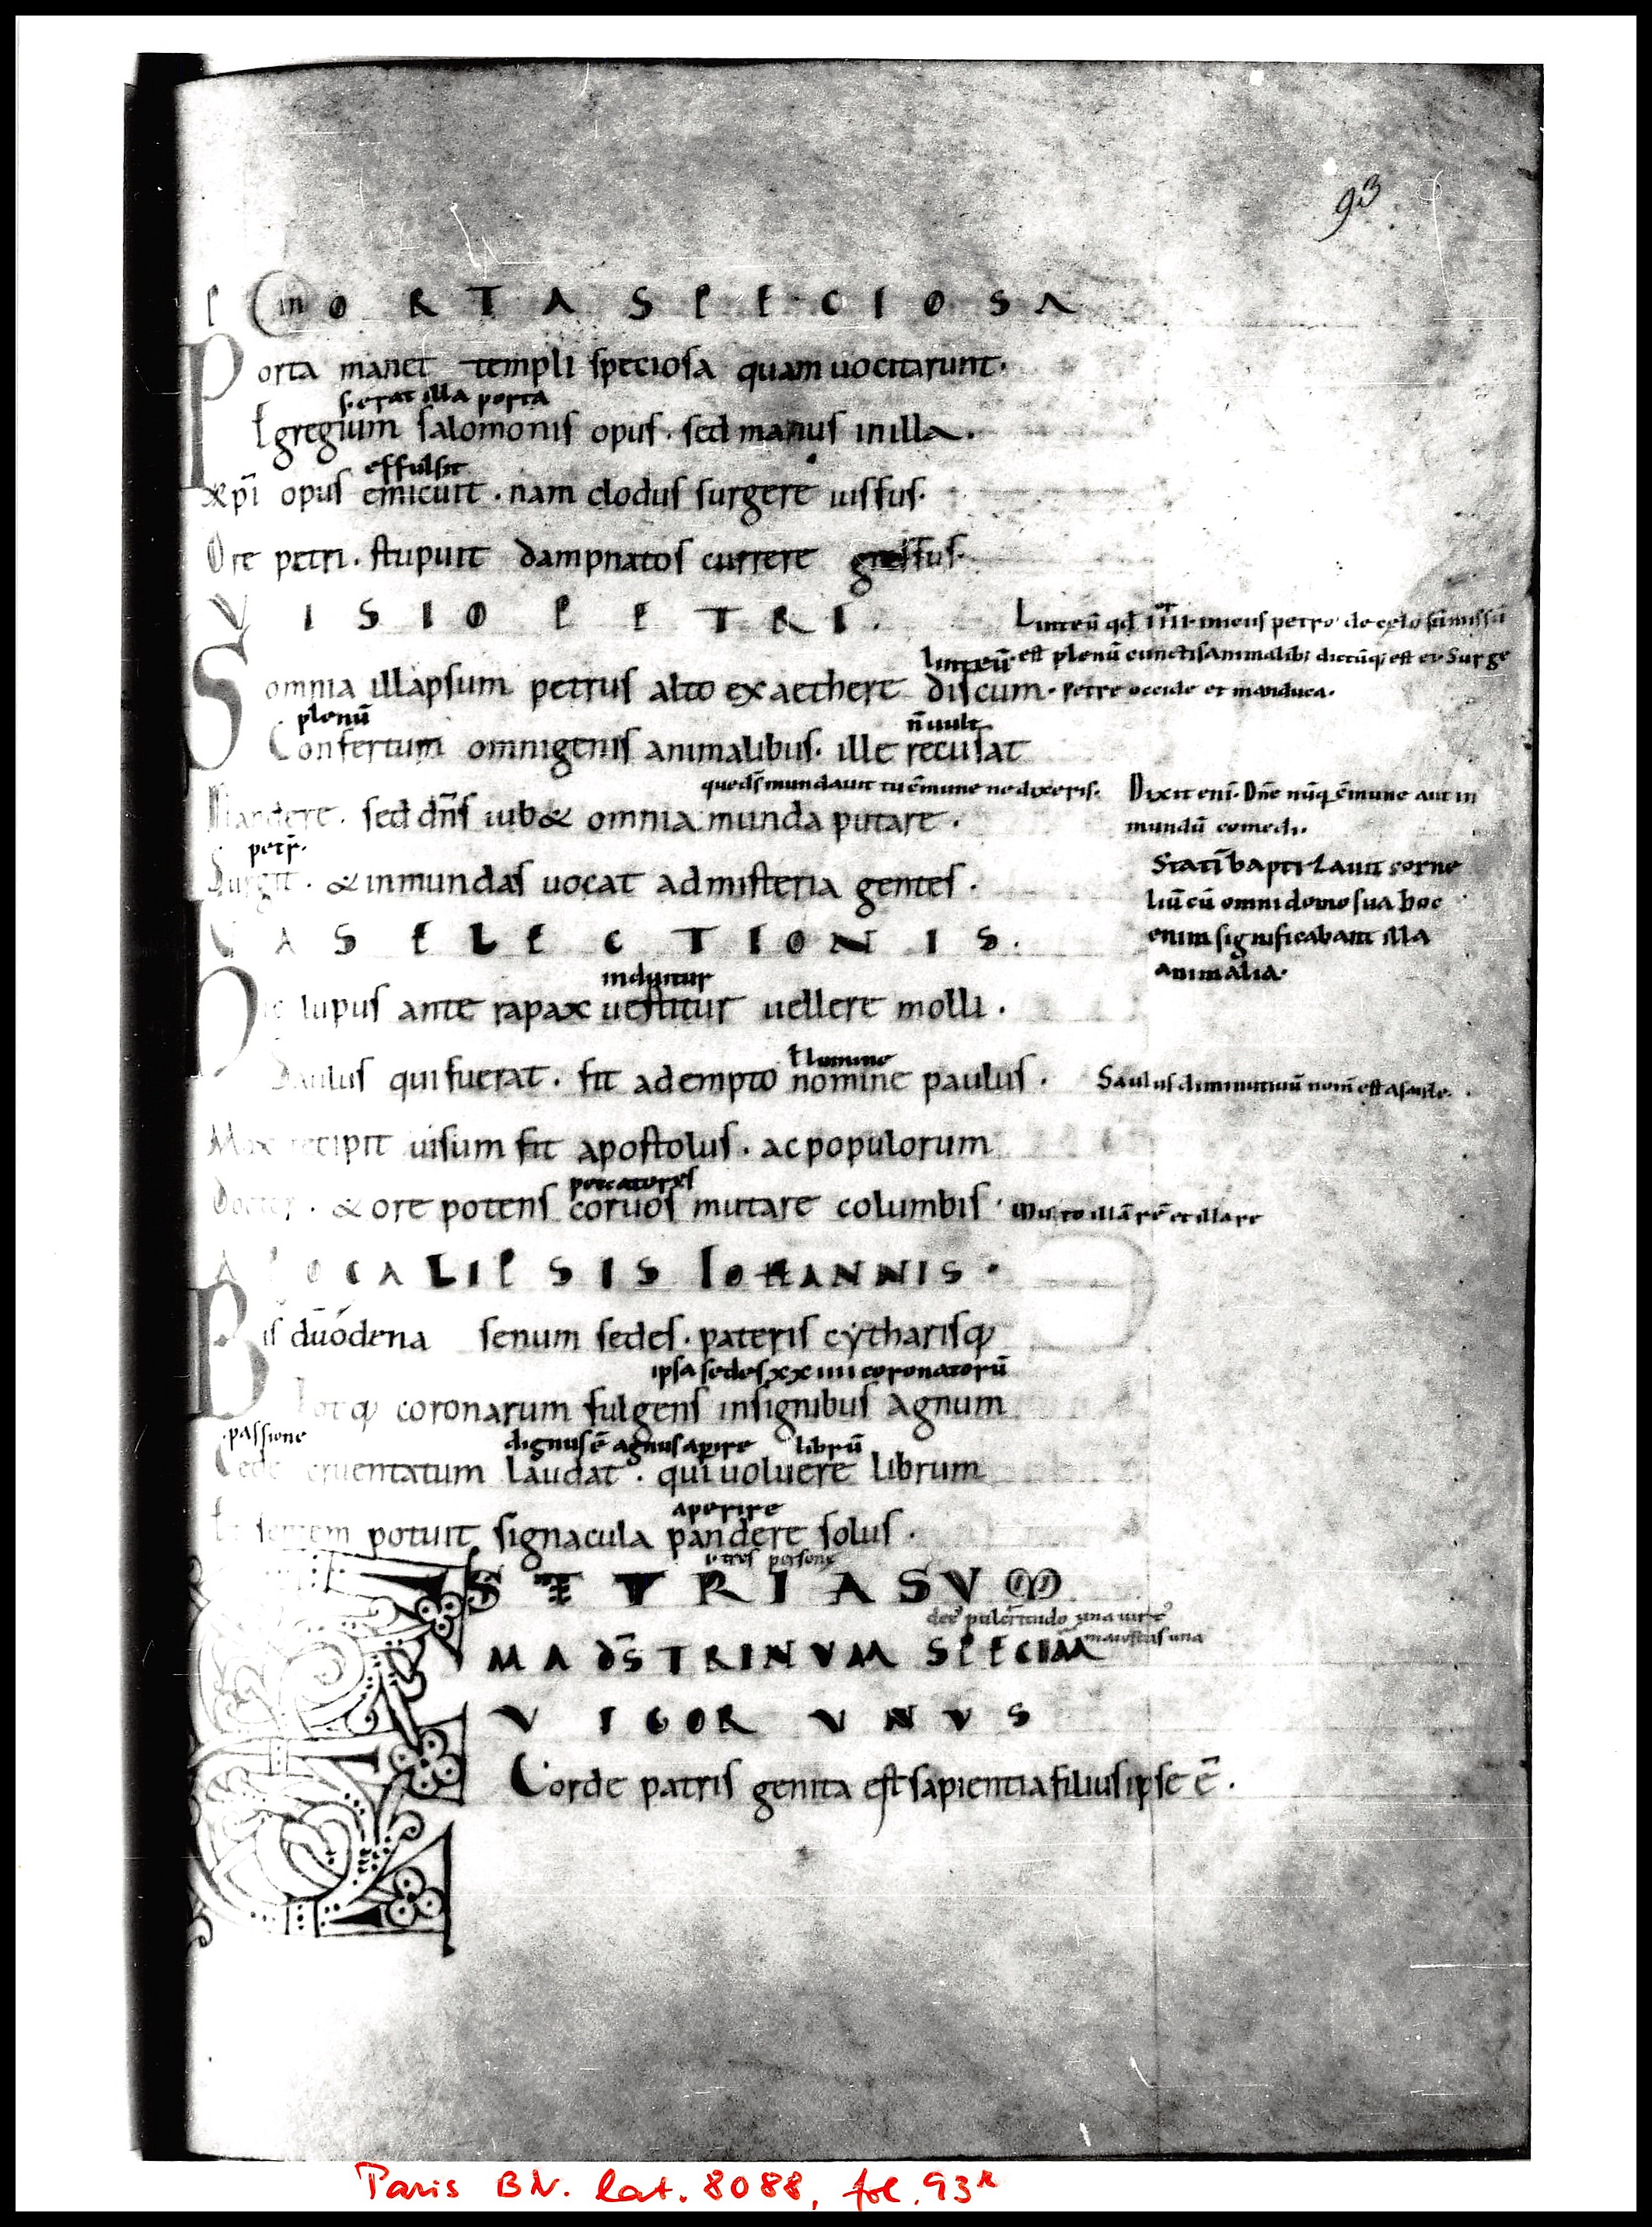 93
P in O R T A S P E C I O S A
Porta manet templi speciosa quam uocitarunt.
s. erat illa porta
Egregium salomonis opus. sed manus inilla.
effulsit
xp̄i opus emicuit. nam clodus surgere iussus.
Ore petri. stupuit dampnatos currere gressus.
V I S I O P E T R I.
Linteū qd IIII initiis petro de celo sūmissū
linteū est plenū cunctis animalib; dictūq; est ei. Surge
Somnia illapsum petrus alto ex aethere discum. petre occide et manduca.
plenū n̄ uult
Confertum omnigenis animalibus. ille recusat
quod ds̄ mundauit tu cōmune ne dixeris. Dixit eni. Dn̄e nūq; cōmune aut in
Mandere. sed dn̄s iub& omnia munda putare.
mundū comedi.
petr̄.
Surgit. & inmundas uocat ad misteria gentes.
Statī baptizauit corne
liū cū omni domo sua hoc
enim significabant illa
animalia.
V A S E L E C T I O N I S.
induitur
Hic lupus ante rapax uestitur uellere molli.
ł lumine
Saulus qui fuerat. fit adempto nomine paulus. Saulus diminutiuū nom̄ est a saule.
Mox recipit uisum fit apostolus. ac populorum
peccatores
Doctor. & ore potens coruos mutare columbis. Muto illā rē et illa re
A P O C A L I P S I S I O H A N N I S.
Bis duōdena senum sedes. pateris cytharisq;
ipsa sedes xxiiii coronatorū
Totq; coronarum fulgens insignibus agnum
passione dignus ē agnus apire librū
Cede cruentatum laudat. qui uoluere librum
aperire
Et septem potuit signacula pandere solus.
tres persone
E S T T R I A S V M
maiestas una
M A D̄S T R I N V M S P E C I M̄
V I G O R V N V S
Corde patris genita est sapientia filius ipse ē.
Paris BN. lat. 8088, fol. 93r